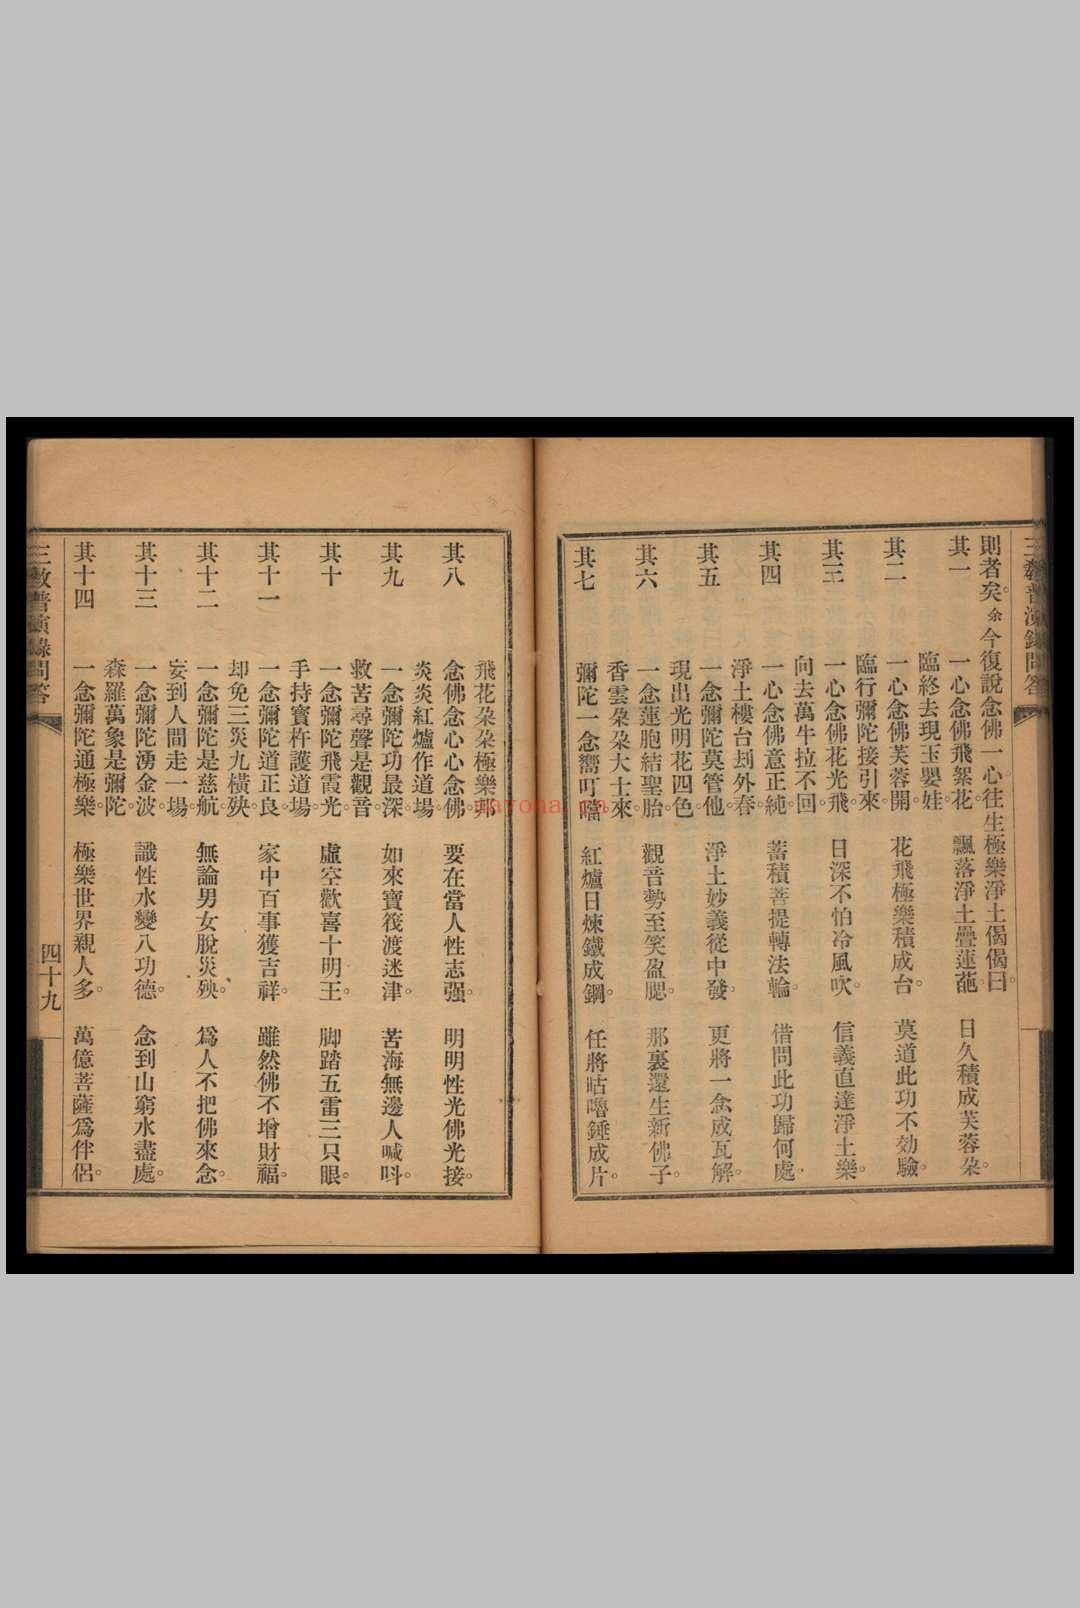 三教普演錄問答
則者矣。余今復說念佛一心往生極樂淨土偈偈曰。
其一 一心念佛飛絮花。飄落淨土疊蓮葩。日久積成芙蓉朶。
臨終去現玉嬰娃。
其二 一心念佛芙蓉開。花飛極樂積成台。莫道此功不効驗。
臨行彌陀接引來。
其三 一心念佛花光飛。日深不怕冷風吹。信義直達淨土樂。
向去萬牛拉不回。
其四 一心念佛意正純。蓄積菩提轉法輪。借問此功歸何處。
淨土樓台刦外春。
其五 一念彌陀莫管他。淨土妙義從中發。更將一念成瓦解。
現出光明花四色。
其六 一念蓮胞結聖胎。觀音勢至笑盈腮。那裏還生新佛子。
香雲朶朶大士來。
其七 彌陀一念嚮叮噹。紅爐日煉鐵成鋼。任將咕嚕錘成片。
飛花朶朶極樂邦。
其八 念佛念心心念佛。要在當人性志强。明明性光佛光接。
炎炎紅爐作道場。
其九 一念彌陀功最深。如來寶筏渡迷津。苦海無邊人喊呌。
救苦尋聲是觀音。
其十 一念彌陀飛霞光。虛空歡喜十明王。脚踏五雷三只眼。
手持寶杵護道場。
其十一 一念彌陀道正良。家中百事獲吉祥。雖然佛不增財福。
却免三災九橫殃。
其十二 一念彌陀是慈航。無論男女脫災殃。爲人不把佛來念。
妄到人間走一場。
其十三 一念彌陀湧金波。識性水變八功德。念到山窮水盡處。
森羅萬象是彌陀。
其十四 一念彌陀通極樂。極樂世界親人多。萬億菩薩爲伴侶。
三教普演錄問答 四十九